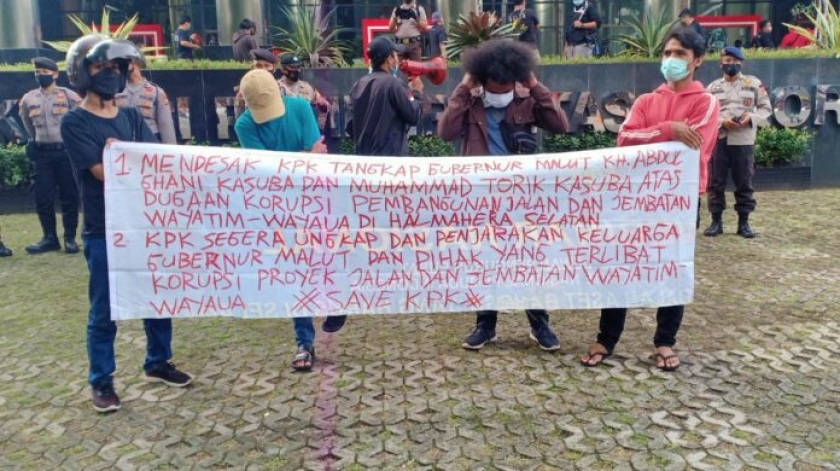 1 MENDESAK KPK TANGKAP GUBERNUR MALUT KH. ABDUL
GHANI KASUBA DAN MUHAMMAD TORIK KASUBA ATAS
DUGAAN KORUPSI PEMBANGUNAN JALAN DAN JEMBATAN
WAYATIM-WAYAUA DI HALMAHERA SELATAN
2 KPK SEGERA UNGKAP DAN PENJARAKAN KELUARGA
GUBERNUR MALUT DAN PIHAK YANG TERLIBAT
KORUPSI PROYEK JALAN DAN JEMBATAN WAYATIM-
WAYAUA SAVE KPK